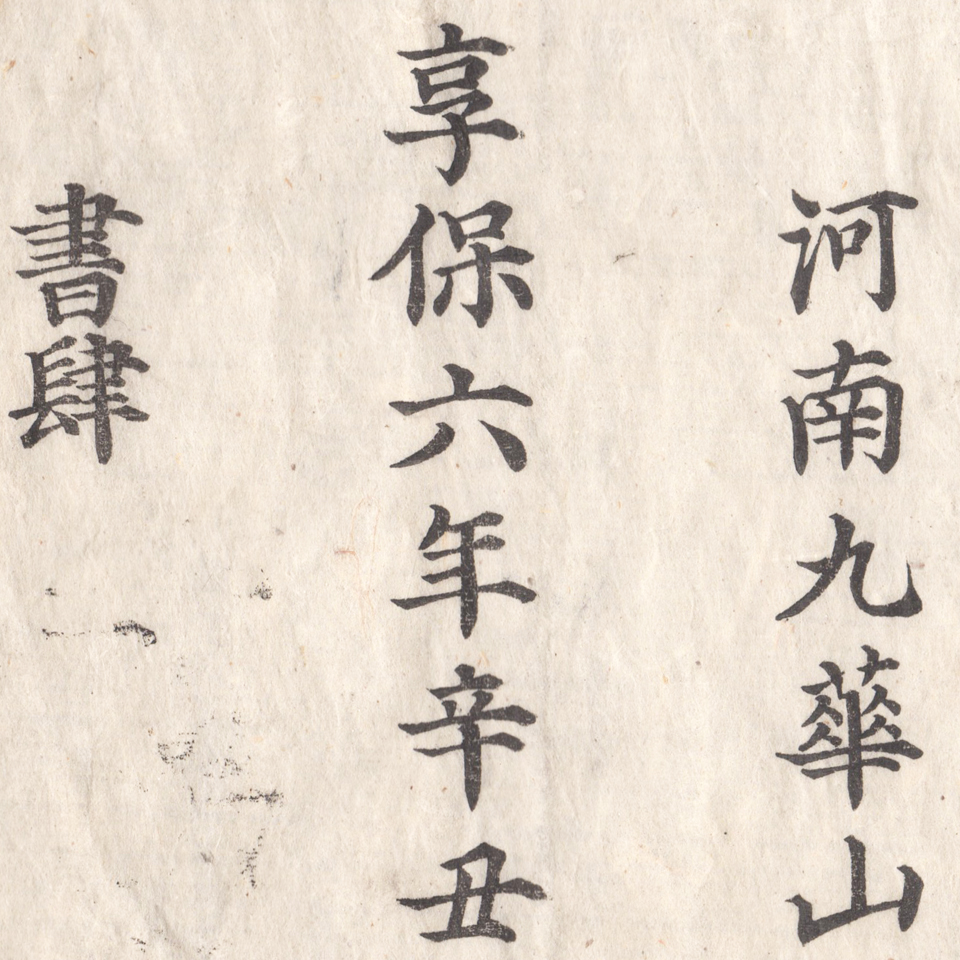 河南九華山
享保六年辛丑
書肆